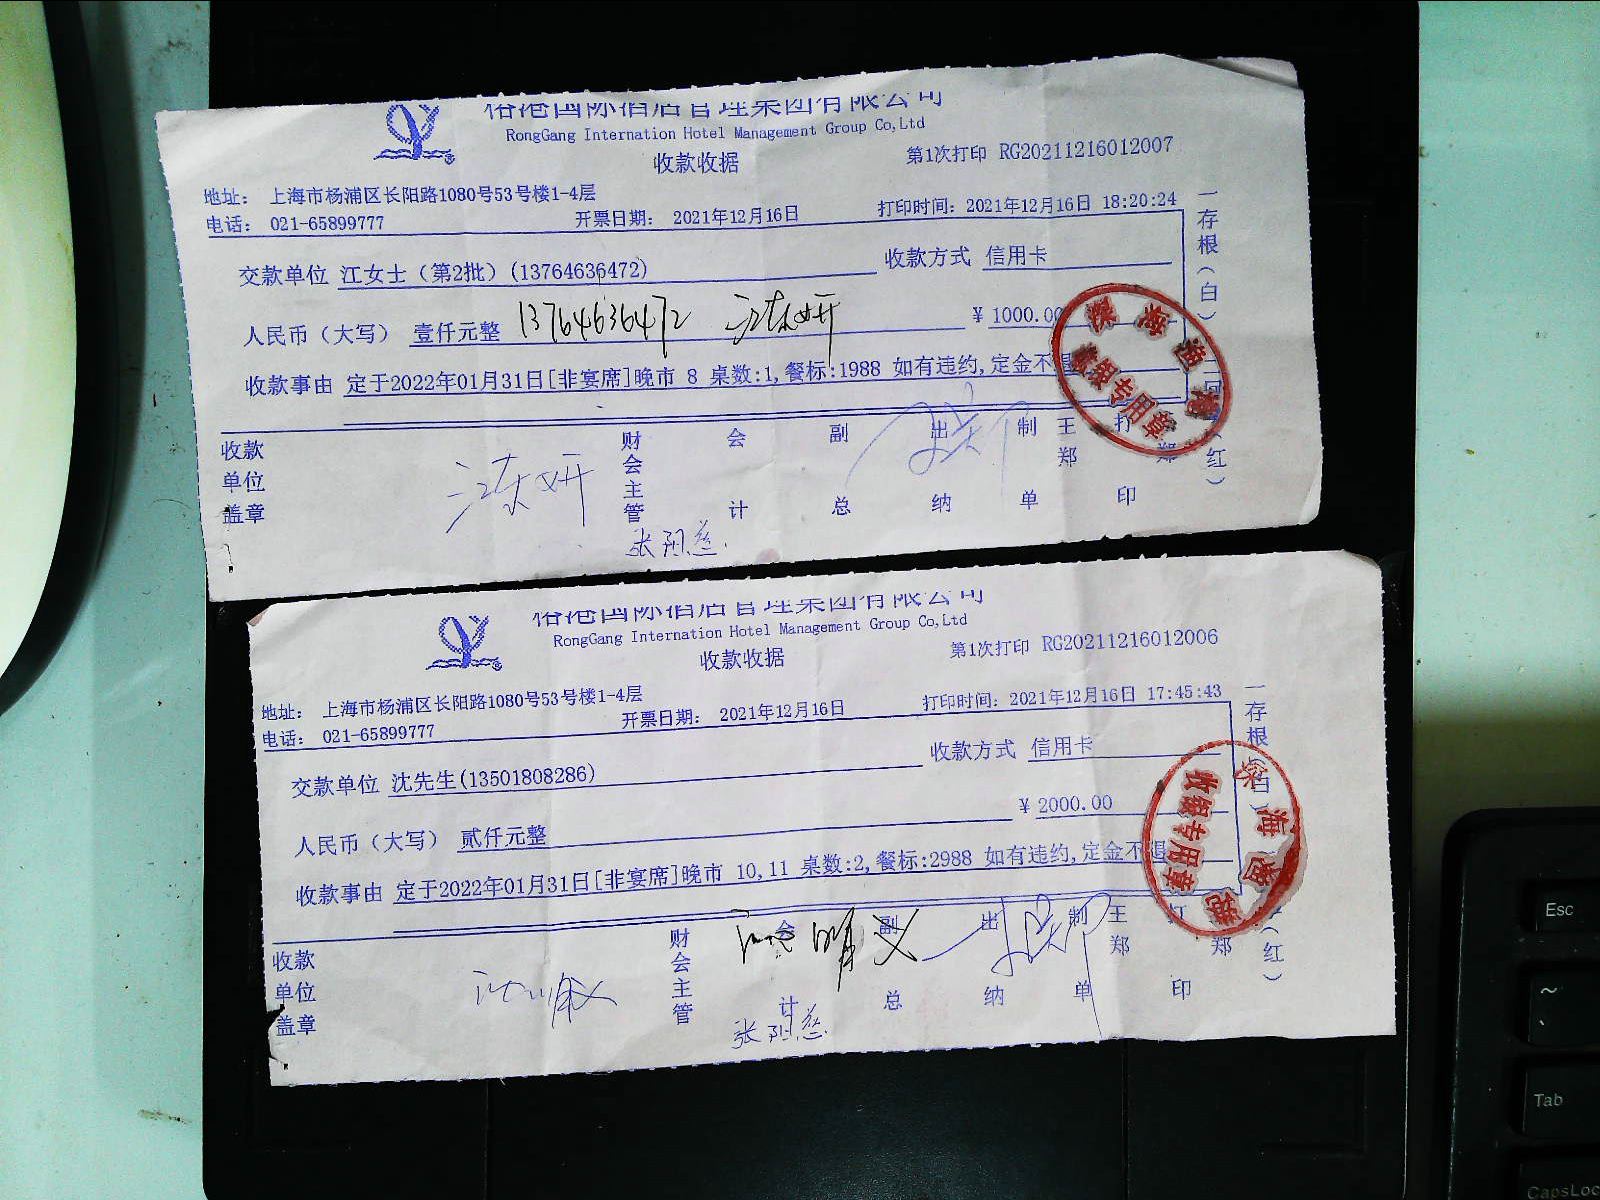 裕港国际酒店管理集团有限公司
RongGang Internation Hotel Management Group Co,Ltd
收款收据
第1次打印 RG20211216012007
地址： 上海市杨浦区长阳路1080号53号楼1-4层
电话： 021-65899777
开票日期： 2021年12月16日
打印时间：2021年12月16日 18:20:24
交款单位 江女士（第2批）(13764636472)
收款方式 信用卡
人民币（大写） 壹仟元整
13764636472
¥ 1000.00
收款事由 定于2022年01月31日[非宴席]晚市 8 桌数:1,餐标:1988 如有违约,定金不退
一存根（白）
（红）
深海
专用章
收款单位盖章
财会主管
会计
副总
出纳
制单
王郑
打印
郑
裕港国际酒店管理集团有限公司
RongGang Internation Hotel Management Group Co,Ltd
收款收据
第1次打印 RG20211216012006
地址： 上海市杨浦区长阳路1080号53号楼1-4层
电话： 021-65899777
开票日期： 2021年12月16日
打印时间：2021年12月16日 17:45:43
交款单位 沈先生(13501808286)
收款方式 信用卡
人民币（大写） 贰仟元整
¥ 2000.00
收款事由 定于2022年01月31日[非宴席]晚市 10,11 桌数:2,餐标:2988 如有违约,定金不退
一存根（白）
（红）
深海
收银专用章
收款单位盖章
财会主管
会计
副总
出纳
制单
王郑
打印
郑
Esc
~
Tab
CapsLoc